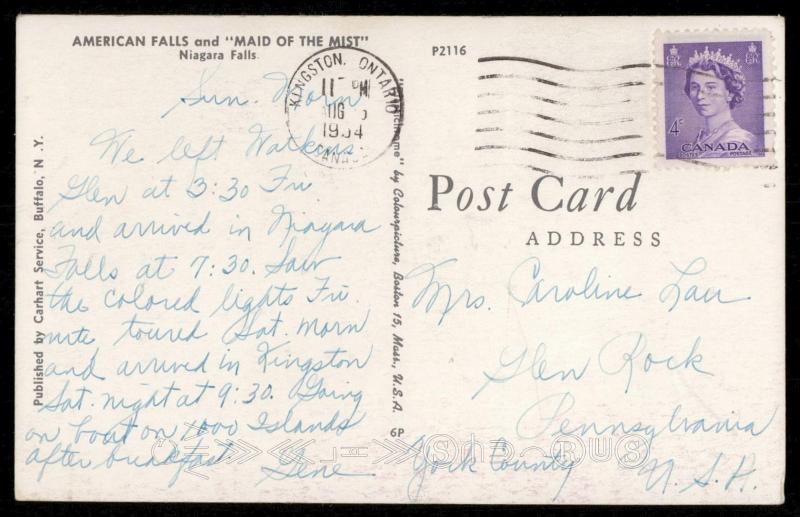 AMERICAN FALLS and "MAID OF THE MIST"
Niagara Falls
P2116
KINGSTON, ONTARIO
AUG
1954
CANADA
4¢
CANADA
POSTES POSTAGE
Sun. Morn
We left Watkins
Glen at 3:30 Fri
and arrived in Niagara
Falls at 7:30. Saw
the colored lights Fri.
nite toured Sat. morn
and arrived in Kingston
Sat. night at 9:30. Going
on boat on 1000 Islands
after breakfast Gene
Published by Carhart Service, Buffalo, N.Y.
by Colourpicture, Boston 15, Mass., U.S.A.
6P
Post Card
ADDRESS
Mrs. Caroline Lau
Glen Rock
Pennsylvania
York County U.S.A.